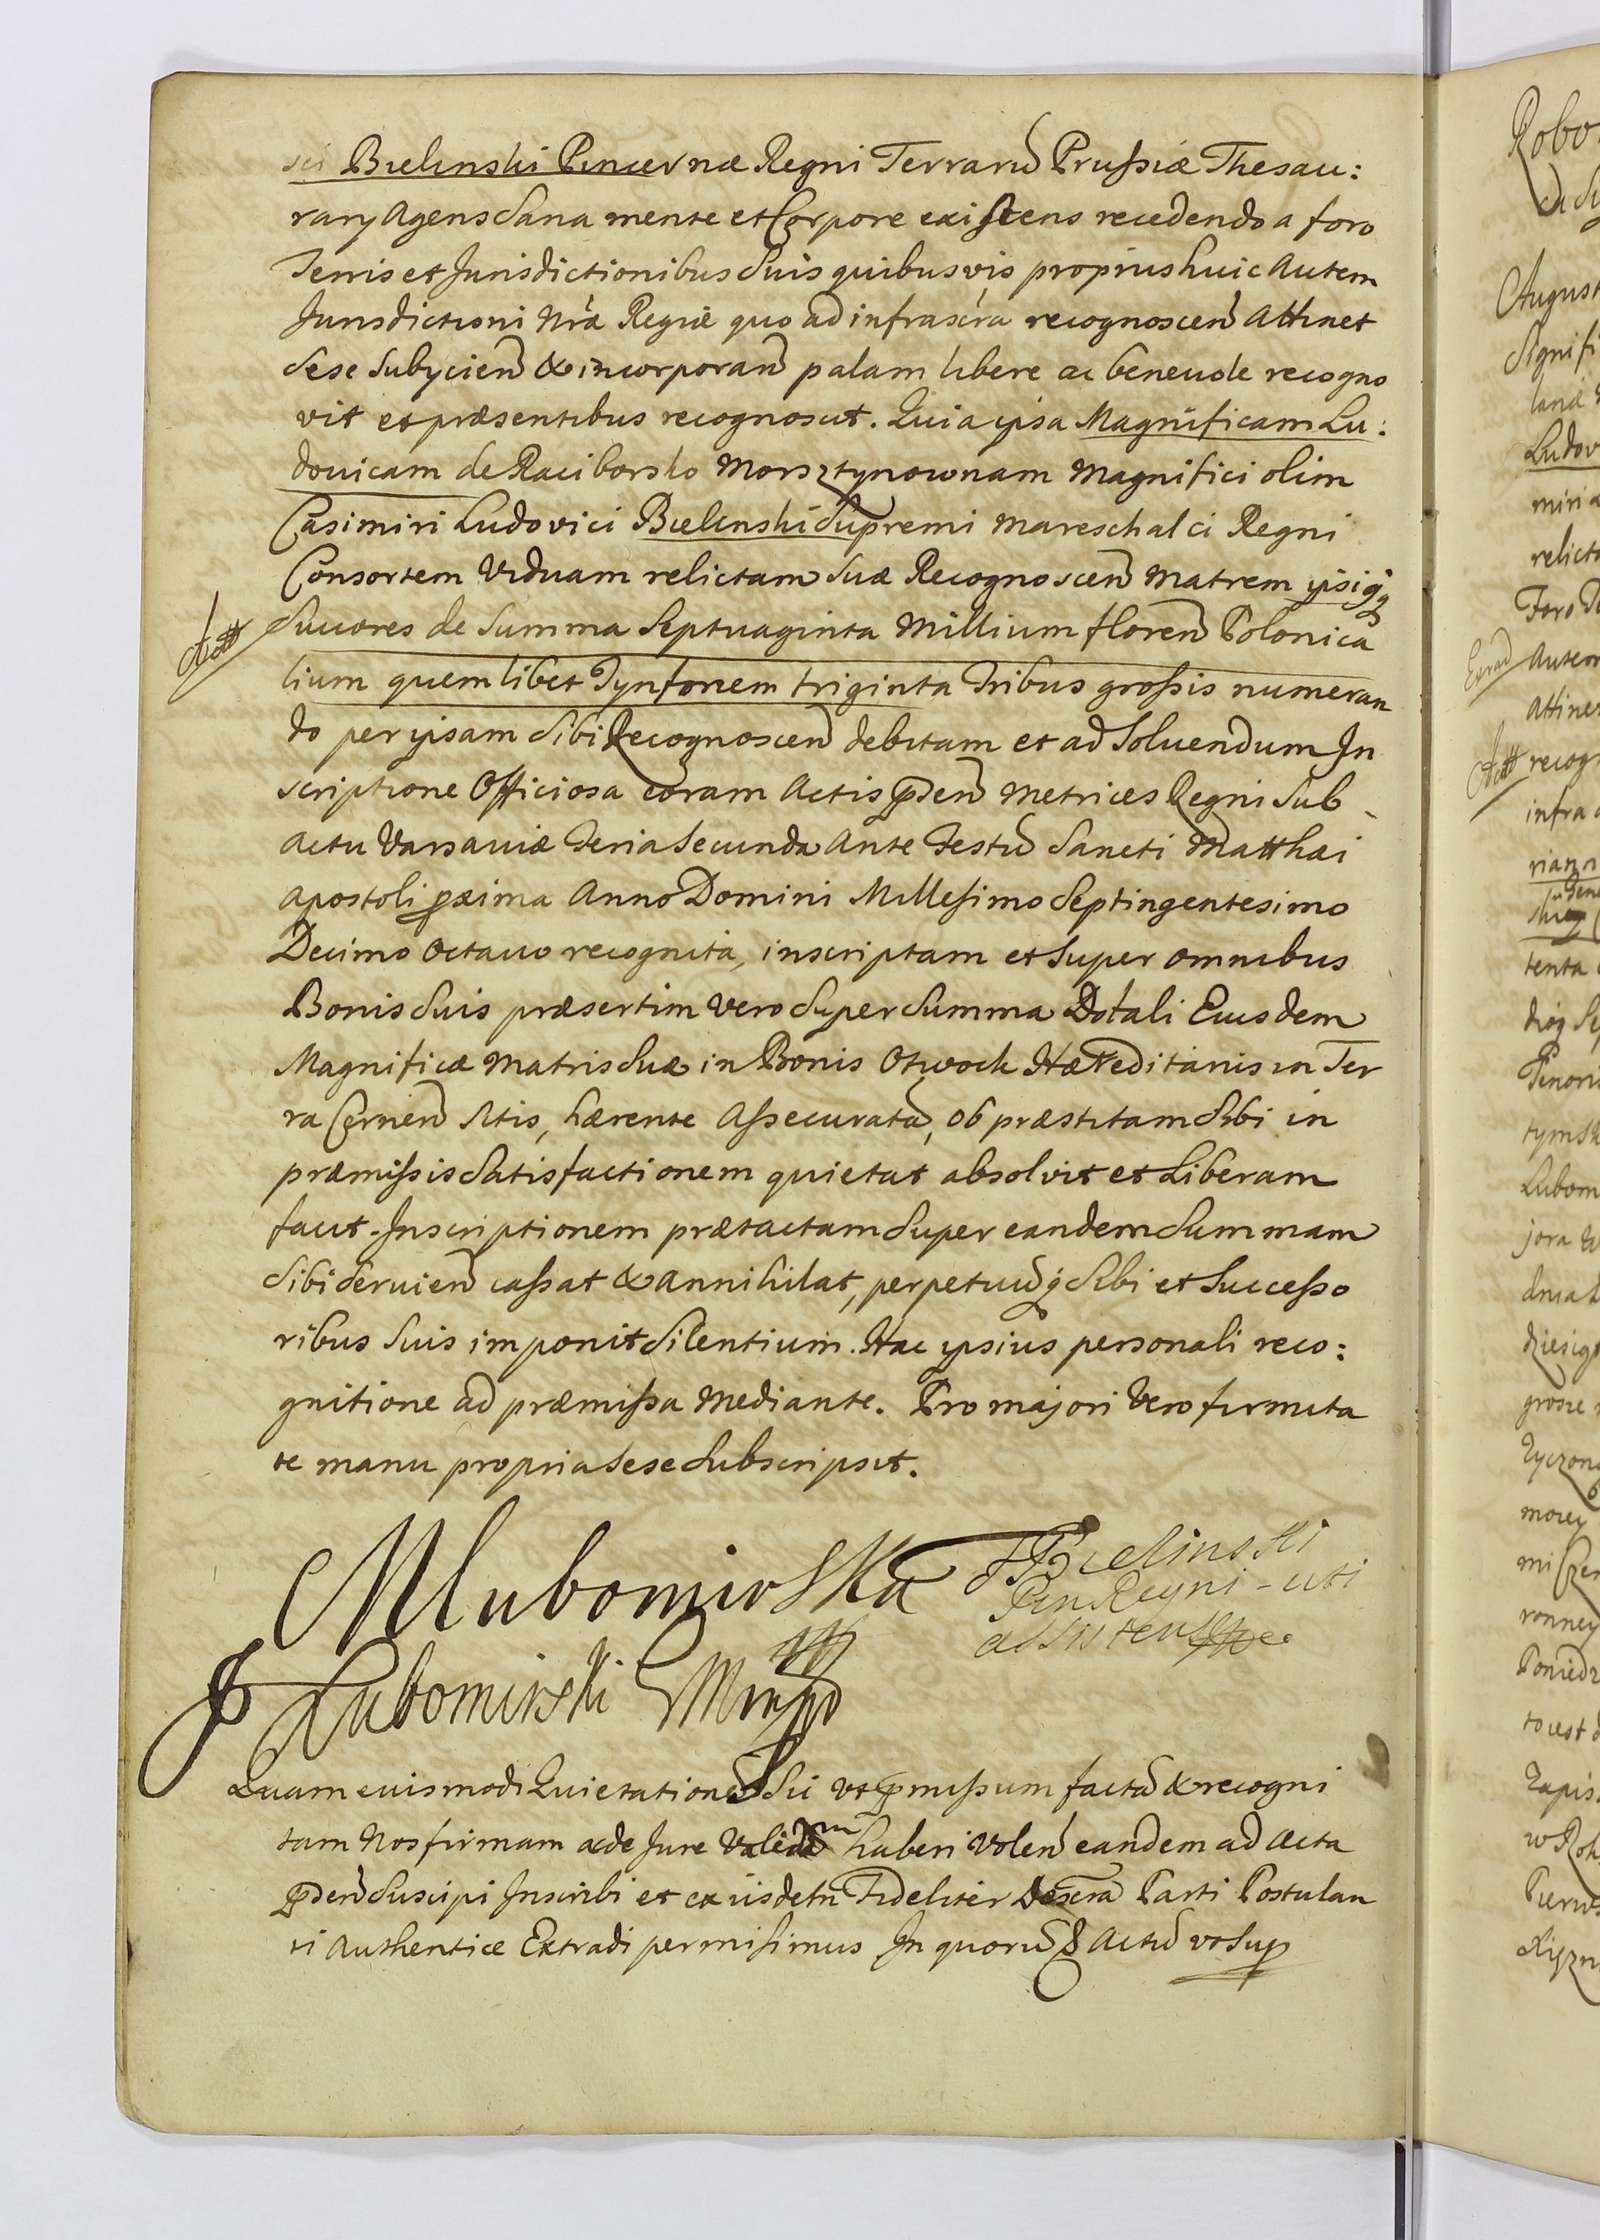 sci Bielinski Pincernæ Regni Terrarū Prussiæ Thesau:
rarÿ Agens Sana mente et Corpore existens recedendo a foro
Terris et Jurisdictionibus Suis quibusvis proprius huic Autem
Jurisdictioni Nr̃æ Regiæ quo ad infrascr̃a recognoscen̄ Attinet
Sese Subÿcien̄ & incorporan̄ palam libere ac beneuole recogno
vit et præsentibus recognoscit. Quia ipsa Magnificam Lu:
douicam de Raciborsko Morsztynownam Magnifici olim
Casimiri Ludovici Bielinski Supremi Mareschalci Regni
Consortem Viduam relictam Suæ Recognoscen̄ Matrem ipsiq3
Succores de Summa Septuaginta Millium floren̄ Polonica
lium quemlibet Tynfonem triginta Tribus grossis numeran
do per ipsam Sibi Recognoscen̄ debitam et ad Soluendum In
scriptione Officiosa coram Actis p̄den̄ Metrices Regni Sub
Actu Varsauiæ Feria Secunda Ante Festū Sancti Matthæi
Apostoli p̄xima Anno Domini Millesimo Septingentesimo
Decimo Octauo recognita, inscriptam et Super omnibus
Bonis Suis præsertim Vero Super Summa Dotali Eiusdem
Magnificæ Matris Suæ in Bonis Otwock Hæreditariis in Ter
ra Cernen̄ Sitis, hærente Assecuratā, ob præstitam Sibi in
præmissis Satisfactionem quietat absolvit et Liberam
facit. Inscriptionem prætactam Super eandem Summam
Sibi Seruien̄ cassat & annihilat, perpetuūq́ Sibi et Successo
ribus Suis imponit Silentium. Hac ipsius personali reco:
gnitione ad præmissa Mediante. Pro majori Vero firmita
te manu propria Sese Subscripsit.
MLubomirska
FBielinski
Pin Regni - uti
assistens
J Lubomirski
Quam euismodi Quietationē Sui vt p̄missum factā & recogni
tam Nos firmam ac de Jure Validam haberi Volen̄ eandem ad Acta
p̄den̄ Suscipi Inscribi et ex iisdem Fideliter Descr̃a Parti Postulan
ti Authentice Extradi permisimus In quorū & Actū vt Sup